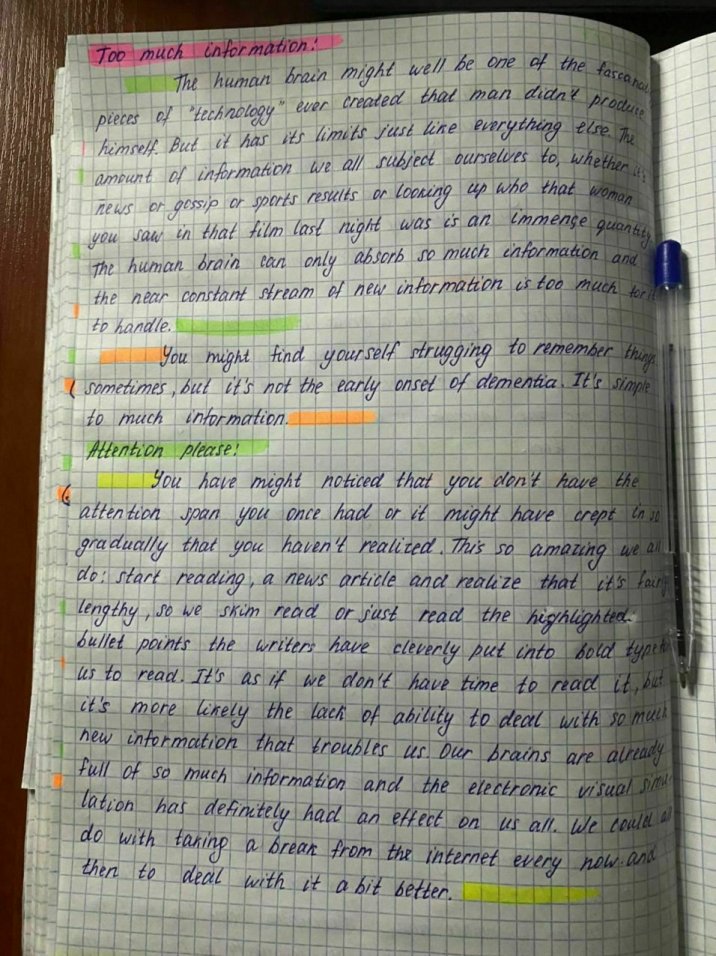 Too much information!
The human brain might well be one of the
pieces of "technology" ever created that man didn't produce
himself. But it has its limits just like everything else. The
amount of information we all subject ourselves to, whether it's
news or gossip or sports results or looking up who that woman
you saw in that film last night was is an immense quantity.
The human brain can only absorb so much information and
the near constant stream of new information is too much for it
to handle.
You might find yourself strugging to remember things
sometimes, but it's not the early onset of dementia. It's simple
to much information.
Attention please!
You have might noticed that you don't have the
attention span you once had or it might have crept in so
gradually that you haven't realized. This so amazing we all
do: start reading, a news article and realize that it's fairly
lengthy, so we skim read or just read the highlighted
bullet points the writers have cleverly put into bold type
us to read. It's as if we don't have time to read it, but
it's more likely the lack of ability to deal with so much
new information that troubles us. Our brains are already
full of so much information and the electronic visual simu-
lation has definitely had an effect on us all. We could all
do with taking a break from the internet every now and
then to deal with it a bit better.